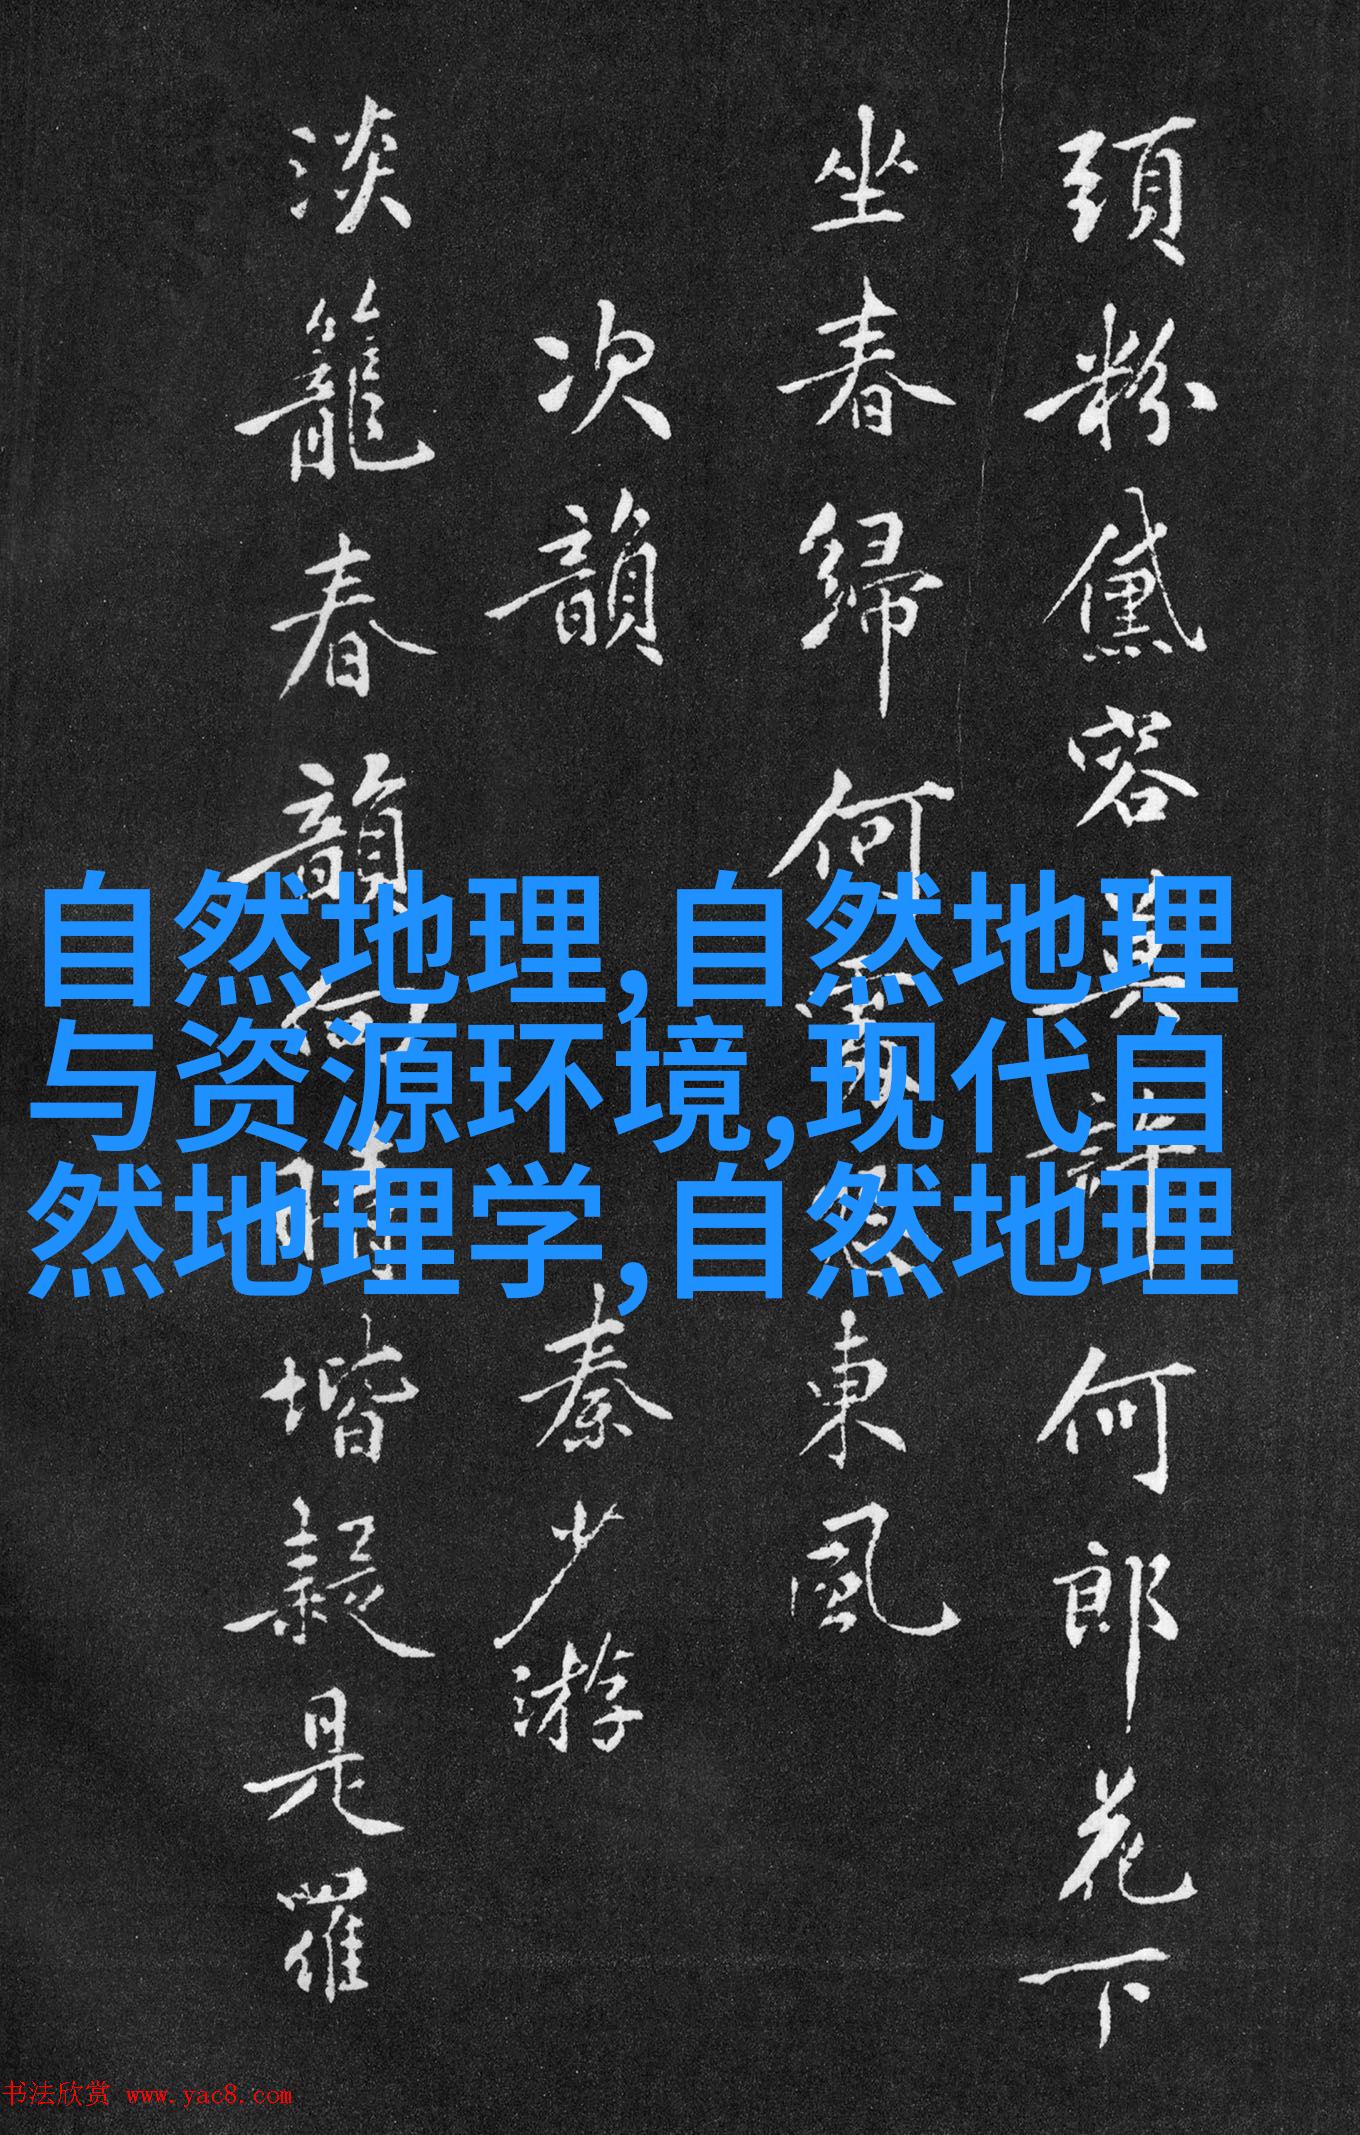 頭粉黛容真許何郎花下
坐春歸何東風
次韻 秦少游
淡籠春韻堦疑是羅
自然地理,自然地理
与资源环境,现代自
然地理学,自然地理
书法欣赏 www.yac8.com